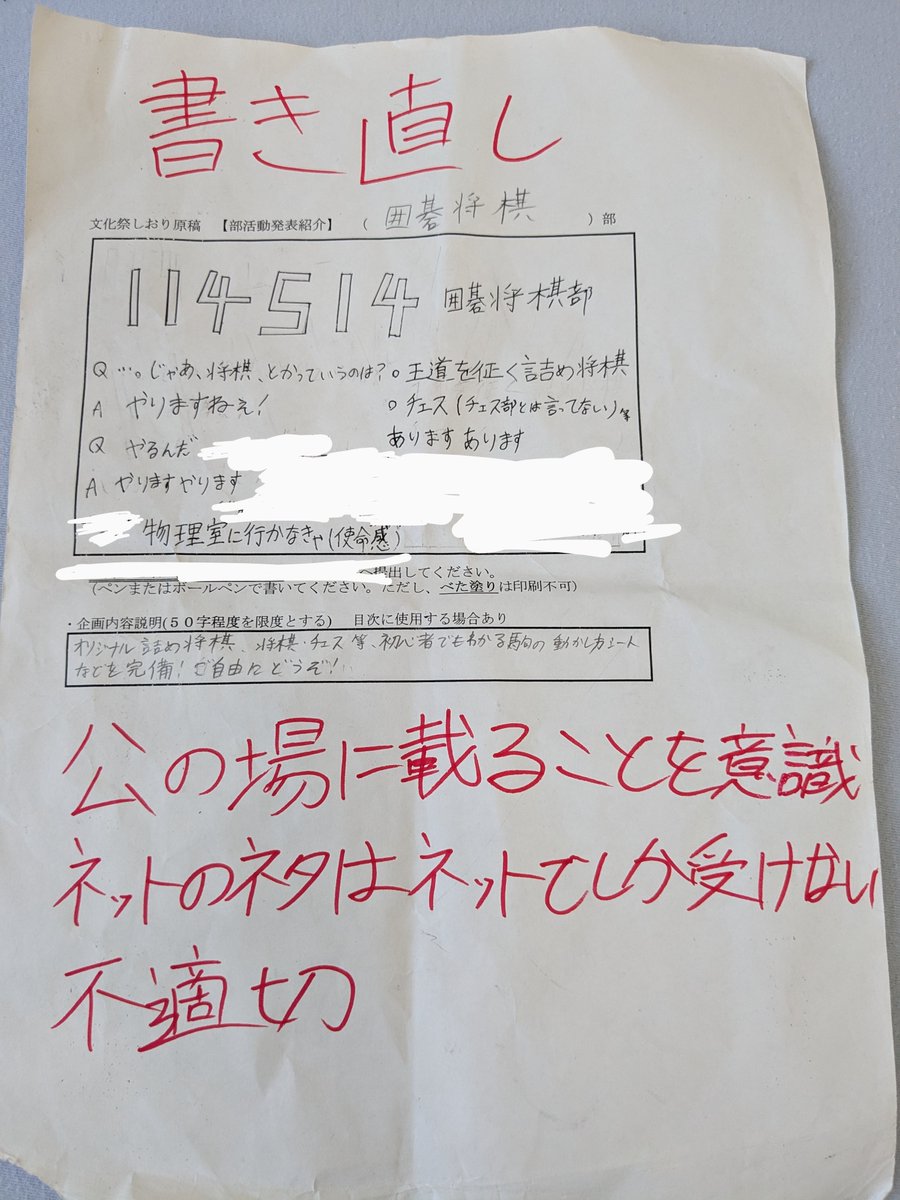 書き直し
文化祭しおり原稿 【部活動発表紹介】 ( 囲碁将棋 ) 部
114514 囲碁将棋部
Q …。じゃあ、将棋、とかっていうのは?
A やりますねぇ!
Q やるんだ
A やりますやります
○ 王道を征く詰め将棋
○ チェス (チェス部とは言ってない) 等
あります あります
物理室に行かなきゃ(使命感)
へ提出してください。
(ペンまたはボールペンで書いてください。ただし、べた塗りは印刷不可)
・企画内容説明(50字程度を限度とする) 目次に使用する場合あり
オリジナル詰め将棋、将棋・チェス等、初心者でもわかる駒の動かし方シート
などを完備!ご自由にどうぞ!
公の場に載ることを意識
ネットのネタはネットでしか受けない
不適切